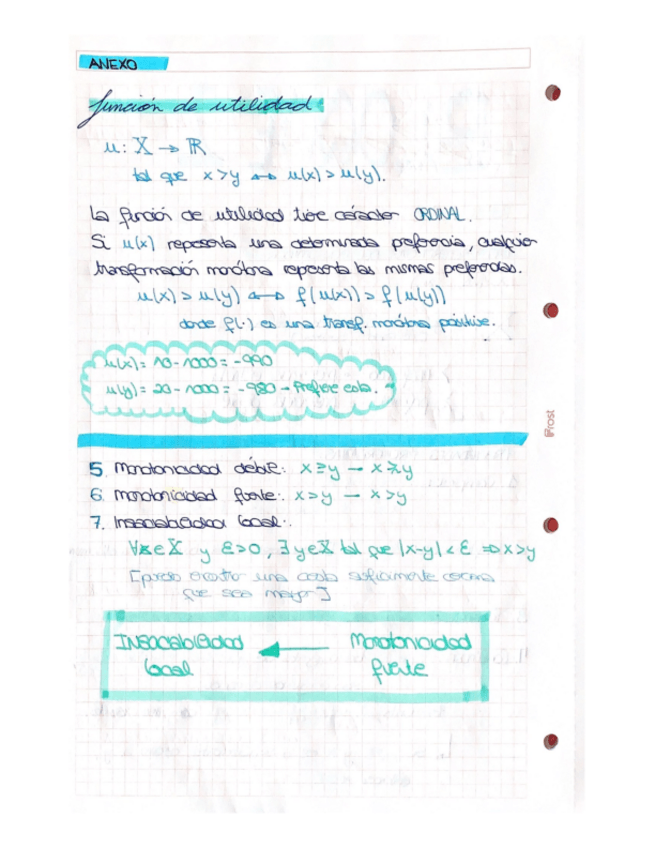 ANEXO
función de utilidad
u: X → ℝ
tal que x > y ↔ u(x) > u(y).
La función de utilidad tiene carácter ORDINAL.
Si u(x) representa una determinada preferencia, cualquier
transformación monótona representa las mismas preferencias.
u(x) > u(y) ↔ f(u(x)) > f(u(y))
donde f(·) es una transf. monótona positiva.
u(x) = 10 - 1000 = -990
u(y) = 20 - 1000 = -980 → Prefiere esta.
5. Monotonicidad débil: x ≥ y → x ≽ y
6. Monotonicidad fuerte: x > y → x > y
7. Insaciabilidad local:
∀x∈X y ε>0, ∃ y∈X tal que |x-y| < ε ⇒ x > y
[puedo encontrar una cesta suficientemente cercana
que sea mejor]
INSACIABILIDAD ← Monotonicidad
local fuerte
Frost